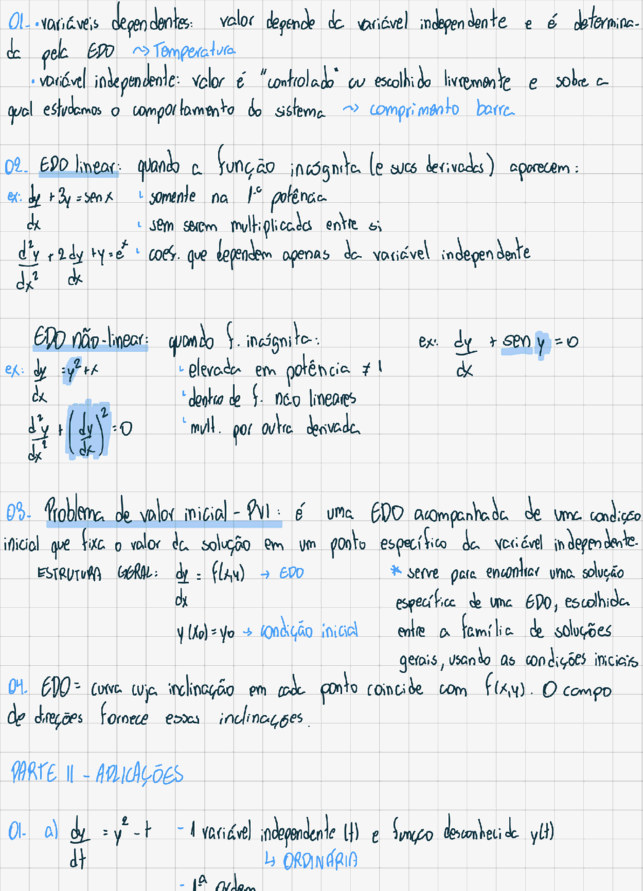 01. • variáveis dependentes: valor depende da variável independente e é determina-
da pela EDO ~> Temperatura
• variável independente: valor é "controlado" ou escolhido livremente e sobre a
qual estudamos o comportamento do sistema ~> comprimento barra
02. EDO linear: quando a função incógnita (e suas derivadas) aparecem:
ex: dy/dx + 3y = sen x ˪ somente na 1ª potência
˪ sem serem multiplicadas entre si
d²y/dx² + 2dy/dx + y = eˣ ˪ coef. que dependem apenas da variável independente
EDO não-linear: quando f. incógnita: ex: dy/dx + sen y = 0
ex: dy/dx = y² + x ˪ elevada em potência ≠ 1
˪ dentro de f. não lineares
d²y/dx² + (dy/dx)² = 0 ˪ mult. por outra derivada
03. Problema de valor inicial - PVI: é uma EDO acompanhada de uma condição
inicial que fixa o valor da solução em um ponto específico da variável independente.
ESTRUTURA GERAL: dy/dx = f(x,y) → EDO * serve para encontrar uma solução
específica de uma EDO, escolhida
y(x₀) = y₀ → condição inicial entre a família de soluções
gerais, usando as condições iniciais
04. EDO = curva cuja inclinação em cada ponto coincide com f(x,y). O campo
de direções fornece essas inclinações.
PARTE II - APLICAÇÕES
01. a) dy/dt = y² - t - 1 variável independente (t) e função desconhecida y(t)
↳ ORDINÁRIA
- 1ª ordem